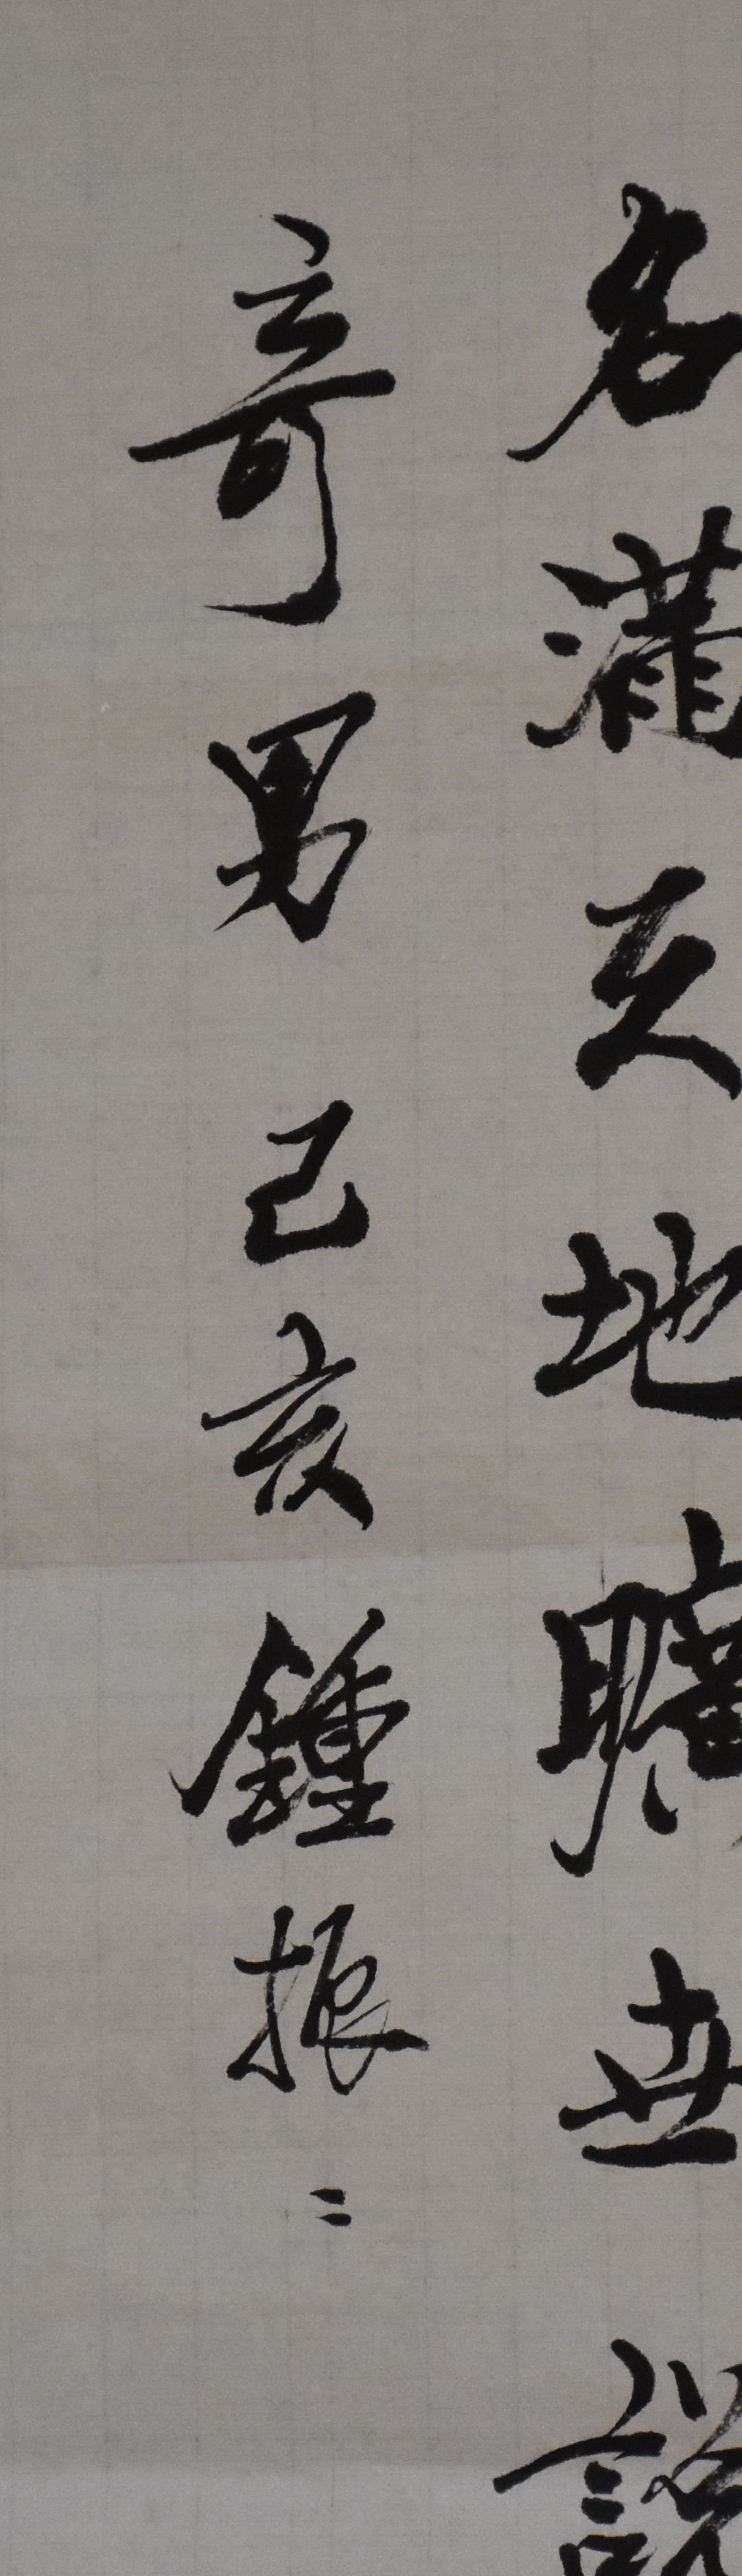 名滿天地曠世說
奇男 己亥鍾振〻